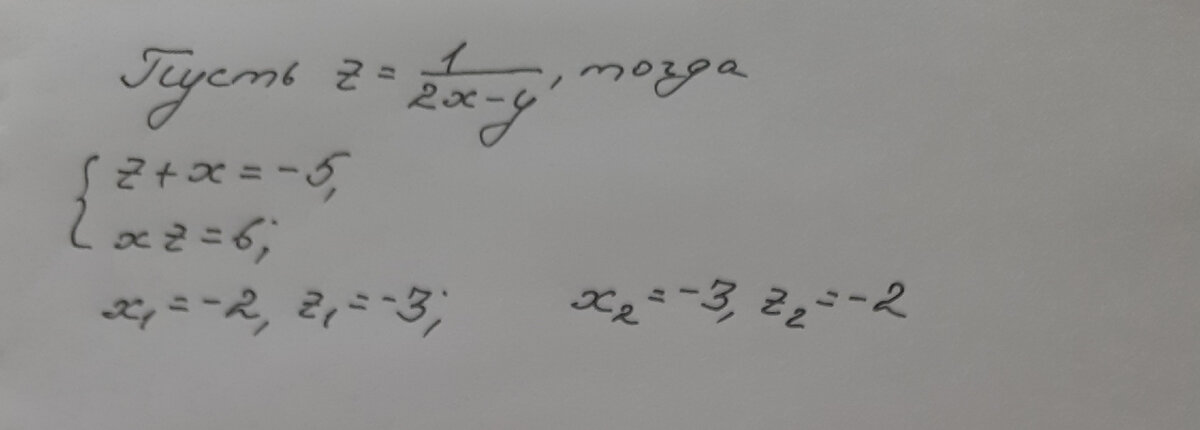 Пусть z = 1/(2x-y), тогда
{ z + x = -5,
x z = 6;
x₁ = -2, z₁ = -3; x₂ = -3, z₂ = -2